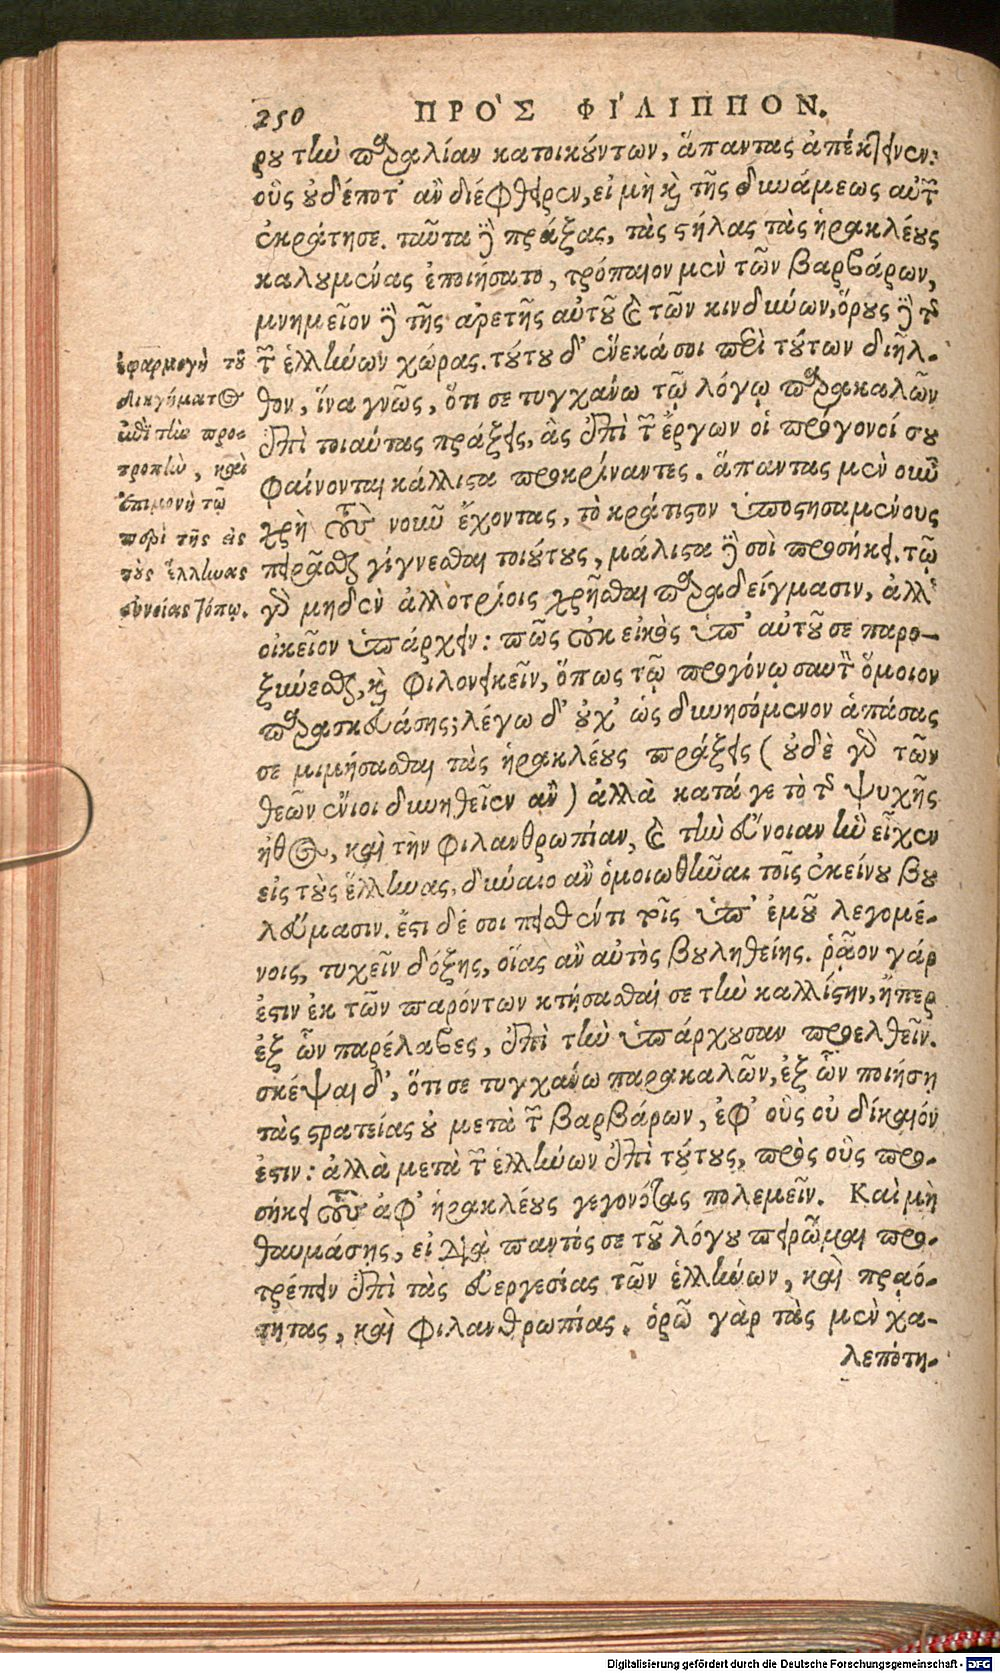 250 ΠΡΟ'Σ ΦΙ'ΛΙΠΠΟΝ.
ρου τὴν παραλίαν κατοικούντων, ἅπαντας ἀπέκτεινεν:
οὓς οὐδέποτ' ἂν διέφθειρεν, εἰ μὴ καὶ τῆς δυνάμεως αὐτῶν
ἐκράτησε. ταῦτα δὲ πράξας, τὰς στήλας τὰς ἡρακλέους
καλουμένας ἐποιήσατο, τρόπαιον μὲν τῶν βαρβάρων,
μνημεῖον δὲ τῆς ἀρετῆς αὐτοῦ καὶ τῶν κινδύνων, ὅρους δὲ τῆς
τῶν ἑλλήνων χώρας. τούτου δ' ἕνεκά σοι περὶ τούτων διῆλ-
θον, ἵνα γνῷς, ὅτι σε τυγχάνω τῷ λόγῳ παρακαλῶν
ἐπὶ τοιαύτας πράξεις, ἃς ἐπὶ τῶν ἔργων οἱ πρόγονοί σου
φαίνονται κάλλιστα προκρίναντες. ἅπαντας μὲν οὖν
χρὴ τοὺς νοῦν ἔχοντας, τὸ κράτιστον ὑποστησαμένους
πειρᾶσθαι γίγνεσθαι τοιούτους, μάλιστα δὲ σοὶ προσήκει. τῷ
γὰρ μηδὲν ἀλλοτρίοις χρῆσθαι παραδείγμασιν, ἀλλ'
οἰκεῖον ὑπάρχειν: πῶς οὐκ εἰκὸς ὑπ' αὐτοῦ σε παρο-
ξύνεσθαι, καὶ φιλονεικεῖν, ὅπως τῷ προγόνῳ σαυτὸν ὅμοιον
παρασκευάσῃς; λέγω δ' οὐχ' ὡς δυνησόμενον ἁπάσας
σε μιμήσασθαι τὰς ἡρακλέους πράξεις (οὐδὲ γὰρ τῶν
θεῶν ἔνιοι δυνηθεῖεν ἂν) ἀλλὰ κατά γε τὸ τῆς ψυχῆς
ἦθος, καὶ τὴν φιλανθρωπίαν, καὶ τὴν εὔνοιαν ἣν εἶχεν
εἰς τοὺς ἕλληνας, δύναιο ἂν ὁμοιωθῆναι τοῖς ἐκείνου βου
λεύμασιν. ἔστι δέ σοι πεισθέντι τοῖς ὑπ' ἐμοῦ λεγομέ-
νοις, τυχεῖν δόξης, οἵας ἂν αὐτὸς βουληθείης. ῥᾷον γάρ
ἐστιν ἐκ τῶν παρόντων κτήσασθαί σε τὴν καλλίστην, ἤπερ
ἐξ ὧν παρέλαβες, ἐπὶ τὴν ὑπάρχουσαν προελθεῖν.
σκέψαι δ', ὅτι σε τυγχάνω παρακαλῶν, ἐξ ὧν ποιήσῃ
τὰς στρατείας οὐ μετὰ τῶν βαρβάρων, ἐφ' οὓς οὐ δίκαιόν
ἐστιν: ἀλλὰ μετὰ τῶν ἑλλήνων ἐπὶ τούτους, πρὸς οὓς προ-
σήκει τοὺς ἀφ' ἡρακλέους γεγονότας πολεμεῖν. Καὶ μὴ
θαυμάσῃς, εἰ διὰ παντός σε τοῦ λόγου πειρῶμαι προ-
τρέπειν ἐπὶ τὰς εὐεργεσίας τῶν ἑλλήνων, καὶ πρᾳό-
τητας, καὶ φιλανθρωπίας. ὁρῶ γὰρ τὰς μὲν χα-
λεπότη-
ἐφαρμογὴ τοῦ
διηγήματος
ἐπὶ τὴν προ-
τροπὴν, καὶ
ἐπιμονὴ τῷ
περὶ τῆς εἰς
τοὺς ἕλληνας
εὐνοίας τόπῳ.
Digitalisierung gefördert durch die Deutsche Forschungsgemeinschaft - DFG